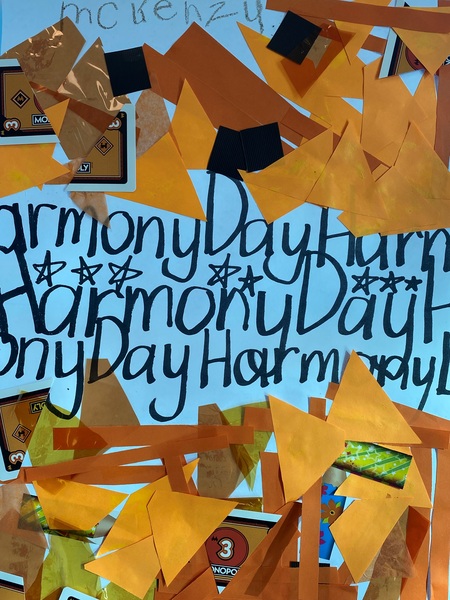 mckenzy
armonyDayHarm
HarmonyDayH
onyDayHarmonyD
MONOPOLY
3